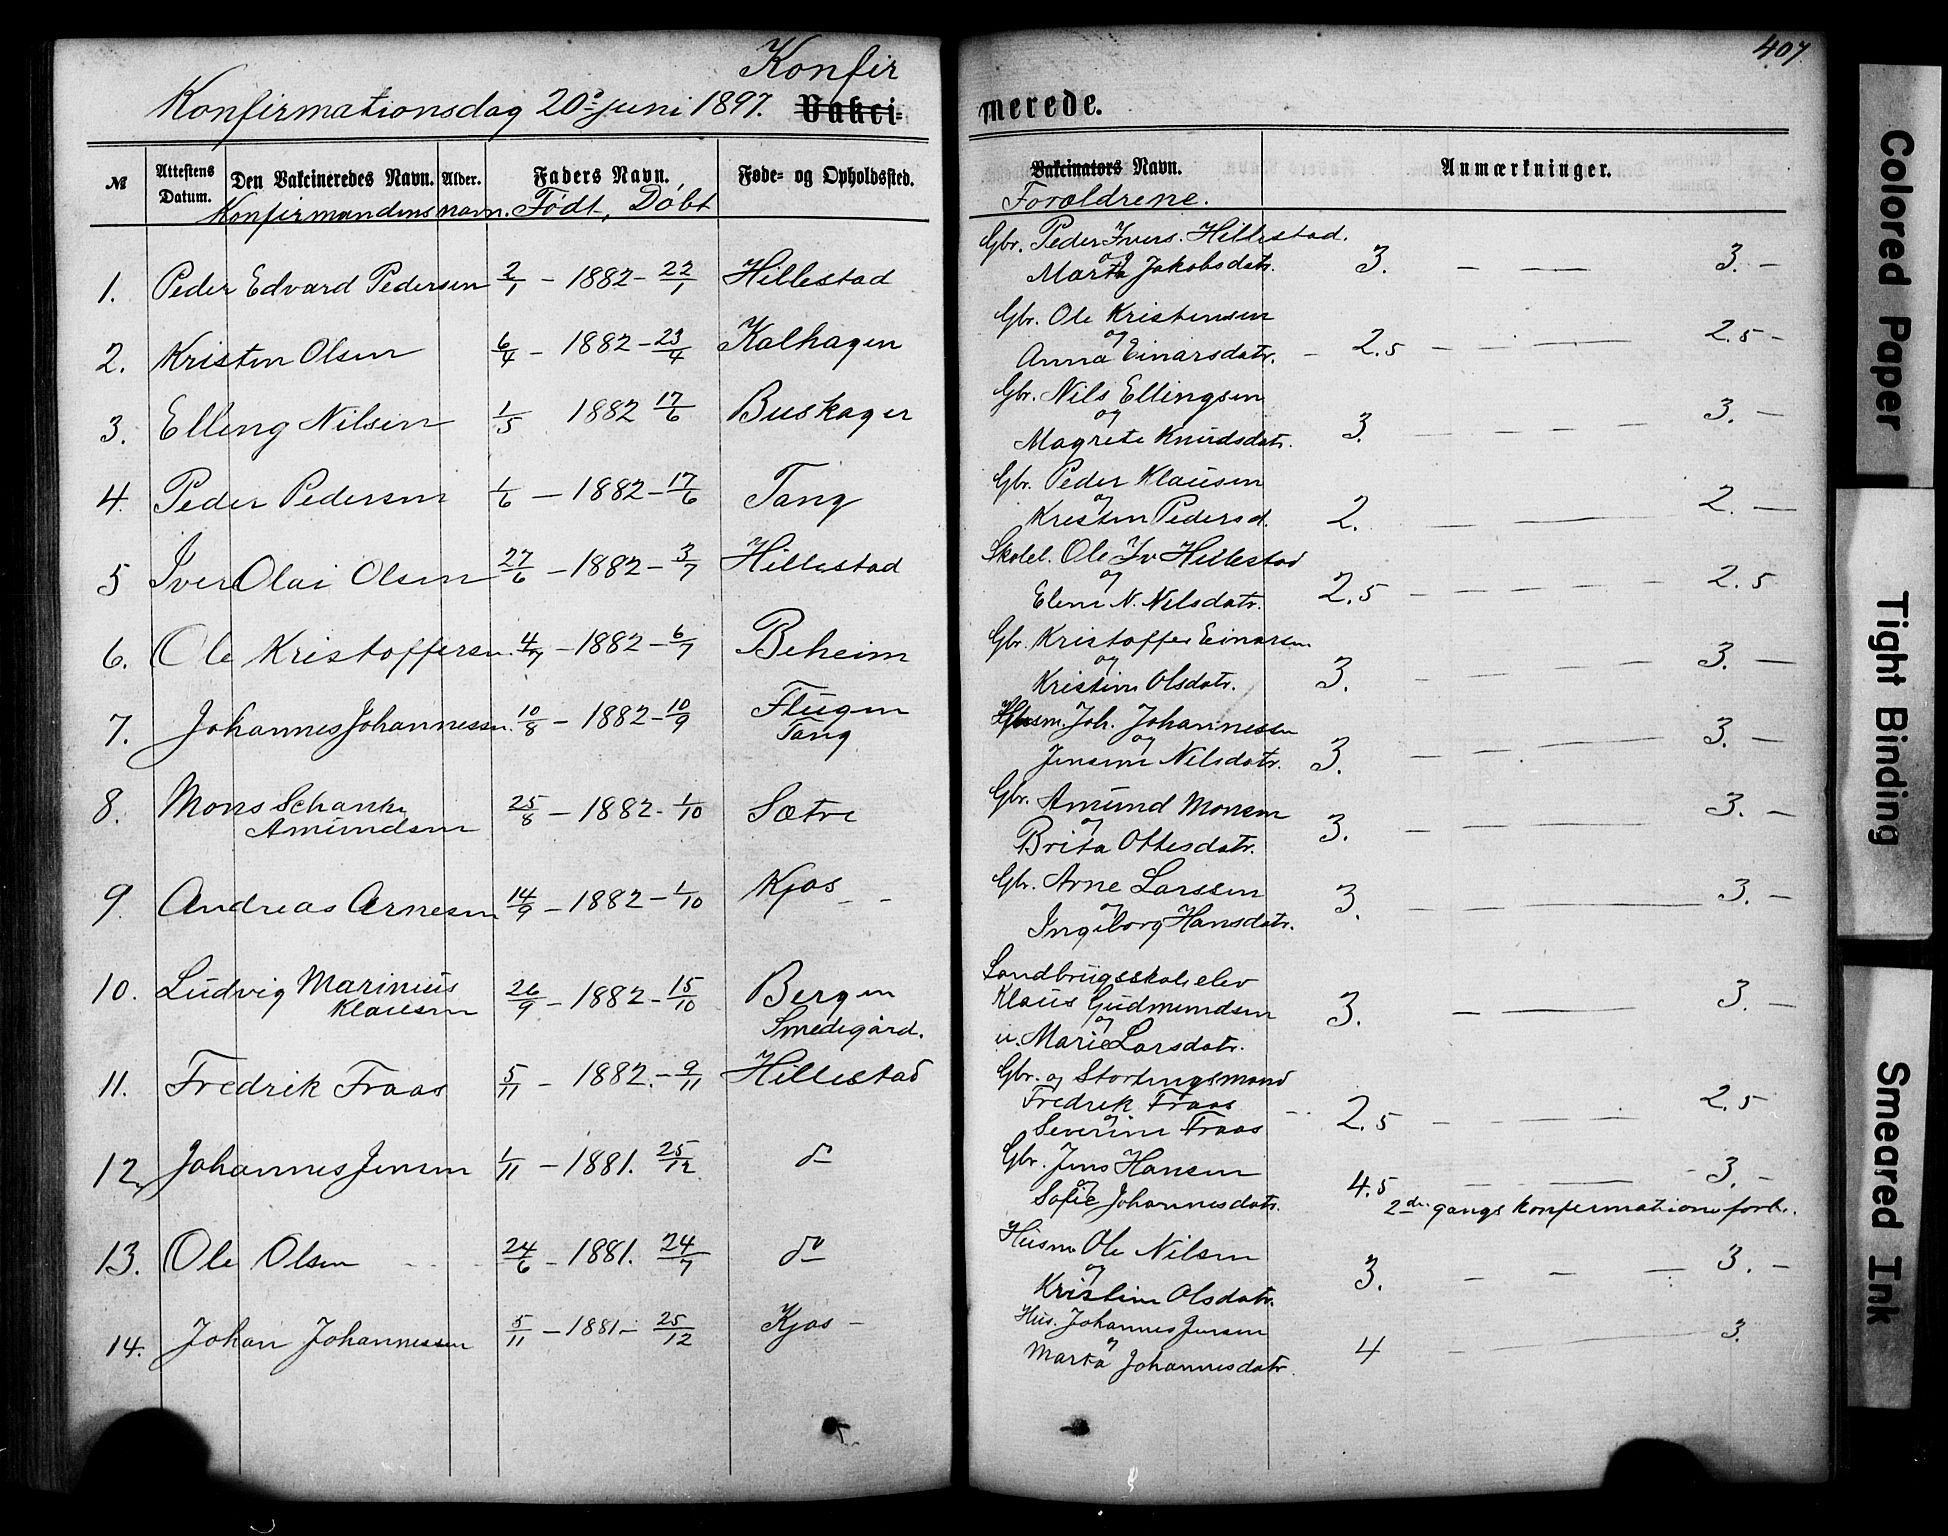 407
Konfir
Konfirmationsdag 20de juni 1897. Vakci=merede.
№ Attestens Datum. Den Vakcineredes Navn. Alder. Faders Navn. Føde= og Opholdssted. Vakcinators Navn. Anmærkninger.
Konfirmandens navn. Født, Døbt Forældrene.
Gbr. Peder Ivers. Hillestad.
og
1. Peder Edvard Pedersen 2/1 – 1882 – 22/1 Hillestad Marta Jakobsdatr. 3. – — 3. –
Gbr. Ole Kristensen
og
2. Kristen Olsen 6/4 – 1882 – 23/4 Kalhagen Anna Einarsdatr. – 2.5 – – – — 2.5 –
Gbr. Nils Ellingsen
og
3. Elling Nilsen 1/5 1882 17/6 Buskager Magrete Knudsdatr. 3. – – – – – 3. –
Gbr. Peder Klausen
og
4. Peder Pedersen 1/6 – 1882 – 17/6 Tang Kristen Pedersd. 2. – — 2. –
Skolel. Ole Iv Hillestad
og
5 Iver Olai Olsen 27/6 – 1882 – 3/7 Hillestad Eleni N. Nilsdatr. 2.5 – – – — – 2.5
Gbr. Kristoffer Einarsen
og
6. Ole Kristoffersen. 4/7 – 1882 – 6/7 Beheim Kristine Olsdatr. 3. – – – – – 3. –
Husm. Joh. Johannessen
og
7. Johannes Johannessen. 10/8 – 1882 – 10/9 Flugen
Tang Jensine Nilsdatr. 3. – – – — 3. –
Gbr. Amund Monsen
og
8. Mons Schanke
Amundsen 25/8 – 1882 – 1/10 Sætre Brita Ottesdatr. 3. – – – — 3. –
Gbr. Arne Larssen
og
9. Andreas Arnesen 14/9 – 1882 – 1/10 Kjos – – Ingeborg Hansdatr. 3. – – — 3. –
Landbrugsskoleelev
10. Ludvig Marinius
Klausen 26/9 – 1882 – 15/10 Bergen
Smedegård. Klaus Gudmundsen
og
u. Marie Larsdatr. 3. – — 3. –
Gbr. og Stortingsmand
11. Fredrik Fraas 5/11 – 1882. – 9/11 Hillestad Fredrik Fraas
og
Severine Fraas – 2.5 – – – — 2.5
Gbr. Jens Hansen
og
12. Johannes Jensen 1/11 – 1881. 25/12 do Sofie Johannesdatr. 4.5 – – — – 3. –
2den gangs konfirmationsforb.
Husm Ole Nilsen
og
13. Ole Olsen 24/6 – 1881. 24/7 do Kristine Olsdatr. 3. – – – 3. –
Hus. Johannes Jensen
og
14. Johan Johannessen 5/11 – 1881 – 25/12 Kjos – Marta Johannesdatr. 4 – — 3.
Colored Paper
Tight Binding
Smeared Ink